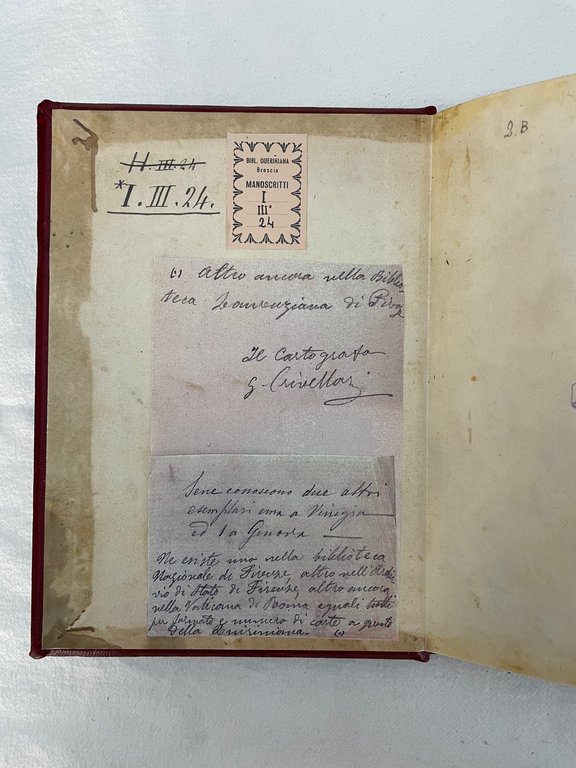 H. III. 24
*I. III. 24.
BIBL. QUERINIANA
Brescia
MANOSCRITTI
I
IIIº
24
(1) Altro ancora nella Biblio-
teca Laurenziana di
Il Cartografo
G. Crivellari
Sene conoscono due altri
esemplari uno a Venezia
ed 1 a Genova —
Ne esiste uno nella biblioteca
Nazionale di Firenze, altro nell'Archi
vio di Stato di Firenze, altro ancora
nella Vaticana di Roma eguali tutti
per formato e numero di carte a questo
della Quiriniana. (1)